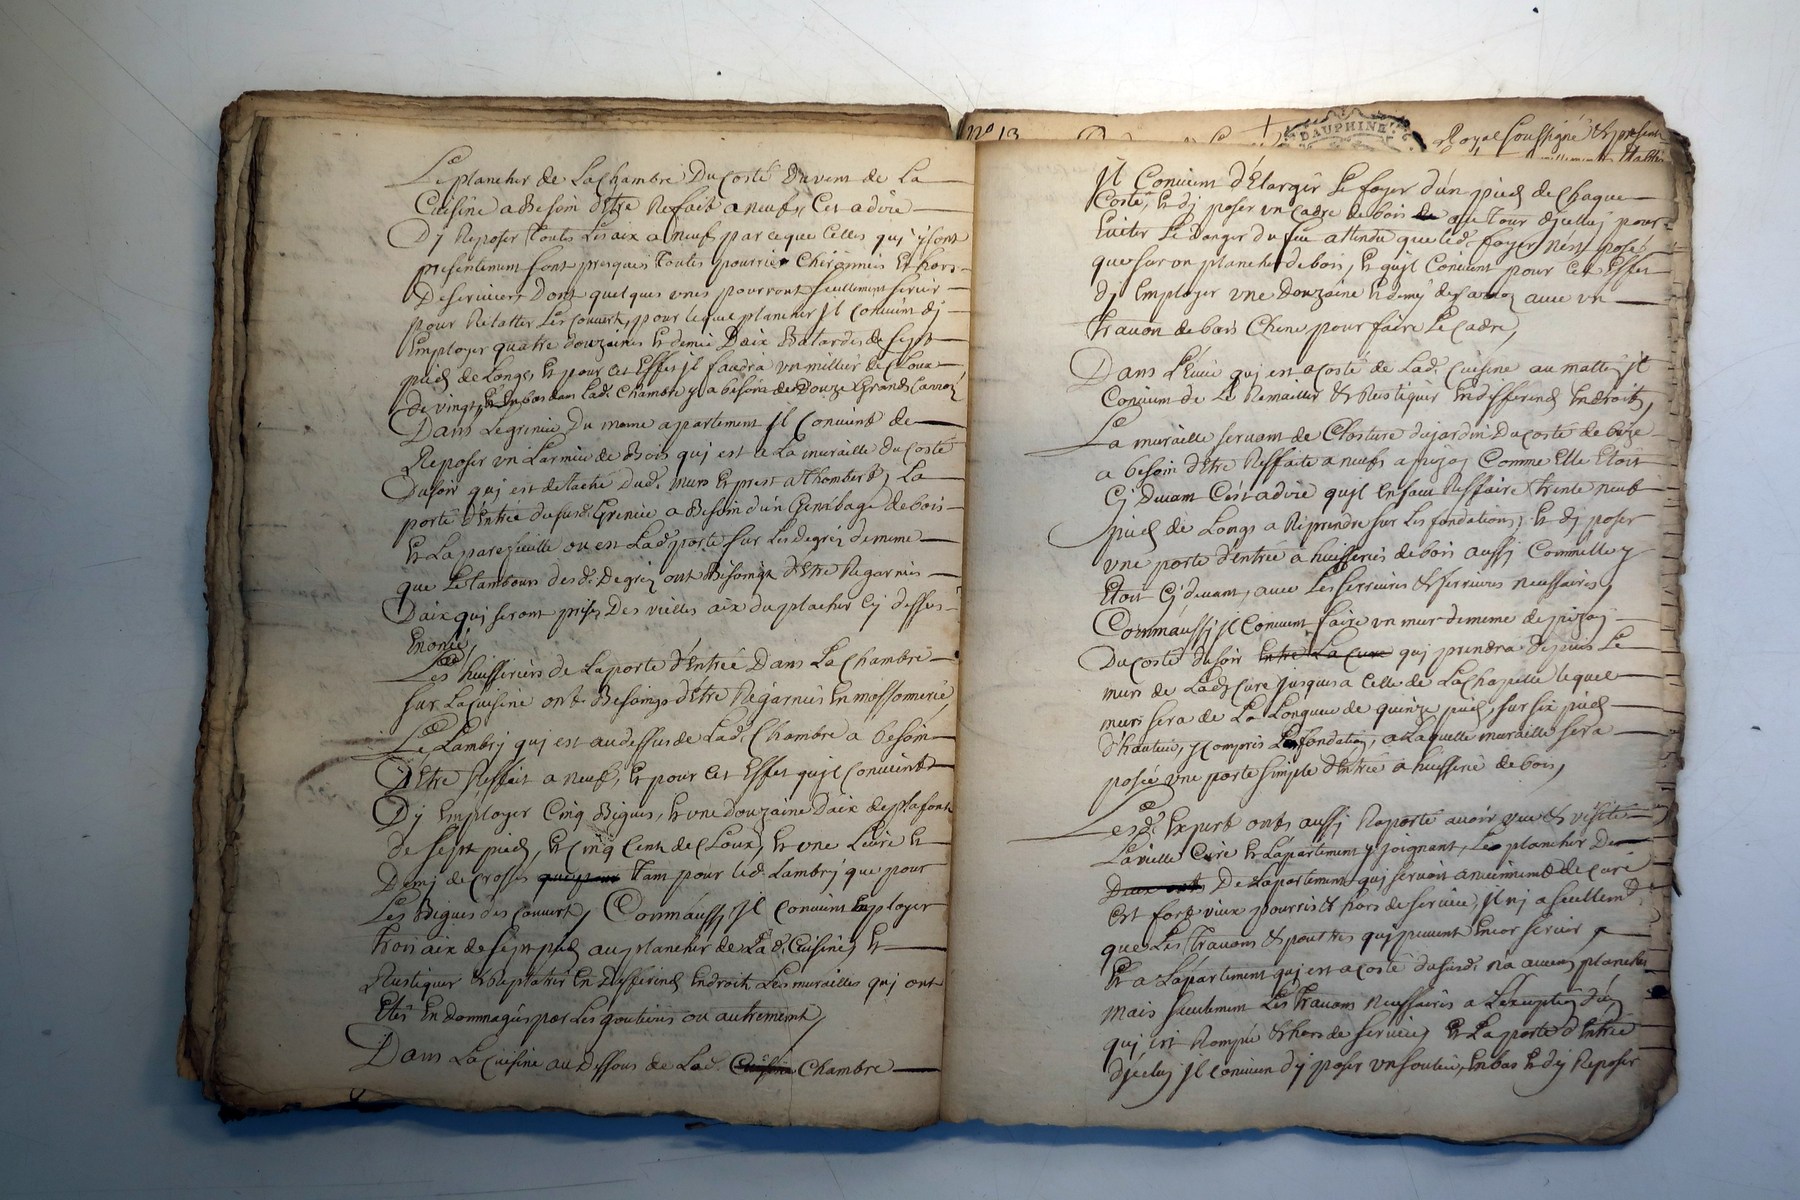 Le plancher de La Chambre Du Costé Du vent de La
Cuisine a Besoin d'Etre Refait a neuf, Cest a dire
Dy Reposer Toutes Les aix a neuf parceque Celles quj ysont
presentement sont presques Toutes pourries Chéronnées Et hors
De service Dont quelques unes pourront seullement servir
pour Relatter Les Couvert, pour lequel plancher Jl Convient dj
Employer quatre douzaines Et demie Daix Batardes de sept
pieds de Longs, Et pour cet Effet jl faudra un millier de Cloux
de vingt, dans Lad. Chambre y a besoin de Douze Grands
Dans Le grenier Du meme apartement Jl Convient de
Reposer un Larmier de Bois quj est a La muraille Du Costé
Du soir quj est detaché Dud. murs Et prest a Thomber, La
porte d'Entrée dususd. Grenier a Besoin d'un de bois
Et La ou est Lad. porte sur Les degréz demême
que Le Tambour desd. Degréz ont Besoings d'Etre Regarnis
Daix quj seront prises Des vielles aix du placher Cj dessus
Enoncé,
Les huisseries de La porte d'Entrée Dans La Chambre
sur La Cuisine ont Besoings d'Etre Regarnies En massonnerie
Le Lambrj quj est au dessus de Lad. Chambre a besoin
D'Etre Reffait a neuf, Et pour Cet Effet quil Convient
Dy Employer Cinq Bigues, Et une douzaine Daix de plafont
de sept pieds, Et Cinq Cent de Cloux, Et une Livre Et
Demj de Crosses que pour Tam pour led. Lambrj que pour
Les Bigues des Couvert, Commaussj Jl Convient Employer
Trois aix de sept pieds au plancher de Lad. Cuisine, Et
Rustiquer & Replatrir En Differends Endroit Les murailles quj ont
Etés Endommagées par Les goutieres ou autrement,
Dans La Cuisine au Dessous de Lad. Cuisine Chambre
no 13
DAUPHINE
Royal soussigné & present
Jl Convient d'Elargir Le foyer d'un pied de Chaque
Costé, Et dj poser un Cadre de bois au Tour djcelluj pour
Eviter Le danger du feu attendu que led. foyer n'est posés
que sur un plancher de bois, Et quil Convient pour Cet Effet
dj Employer une Douzaine Et demj de avec un
Travon de bois Chene pour faire Le Cadre,
Dans L'Ecuie quj est a Costé de Lad. Cuisine au mattin jl
Convient de Le Remailler & Rustiquer En differends Endroits,
La muraille servant de Closture du jardin Du Costé de bize
a besoin d'Etre Reffaite a neufs a pizoj Comme Elle Etoit
Cj Devant C'est a dire quil En faut Reffaire trente neuf
pieds de Longs a Reprendre sur Les fondations, Et dj poser
une porte d'Entrée a huisseries de bois aussj Commelle y
Etoit Cj devant, avec Les serrures & ferrures necessaires,
Commaussj jl Convient faire un mur demême de pizoj
Du Costé du soir Entre La Cure quj prendra depuis Le
murs de Lad. Cure jusques a Celle de La Chapelle lequel
murs sera de La Longueur de quinze pieds, sur six pieds
d'hauteur, y Compris Les fondations, a Laquelle muraille sera
posée une porte simple d'Entrée a huisserie de bois,
Lesd. Expert onts aussj Raporté avoir vue & visité
La vielle Cure Et Lapartement y joignant, Le plancher De
De Lapartement quj servoit anciennement de Curé
Est fort vieux pourris & hors de service, jl nj a seullement
que Les Travons & poutres quj peuvent Encor servir,
Et a Lapartement quj est a Costé dususd. na aucun plancher
mais seulement Les Travons necessaires a L'exeption d'un
quj est Rompu & hors de service, Et La porte d'Entrée
djceluj Jl Convient dj poser un Soulier, En bas Et dy Reposer